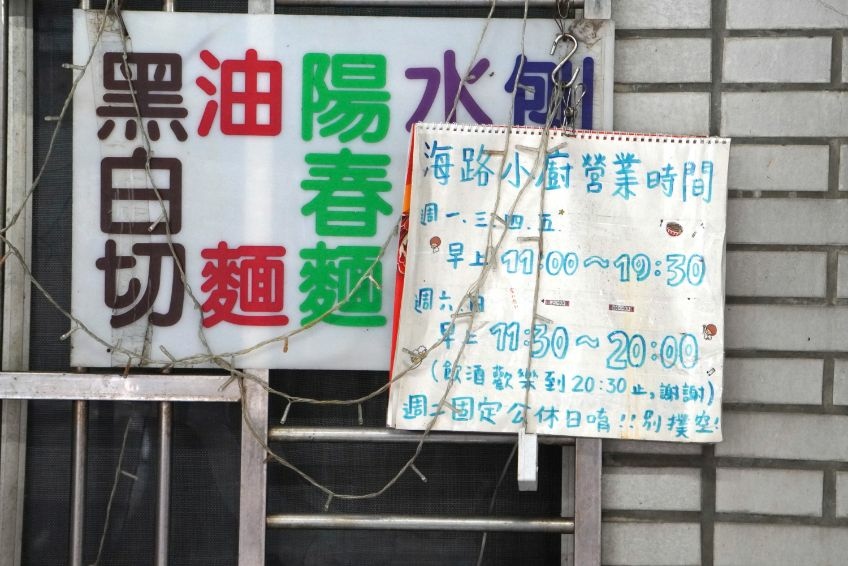 黑白切
油麵
陽春麵
水
海路小廚營業時間
週一.三.四.五
早上 11:00~19:30
週六.日
早上 11:30~20:00
(飲酒歡樂到20:30止,謝謝)
週二固定公休日唷!!別撲空!